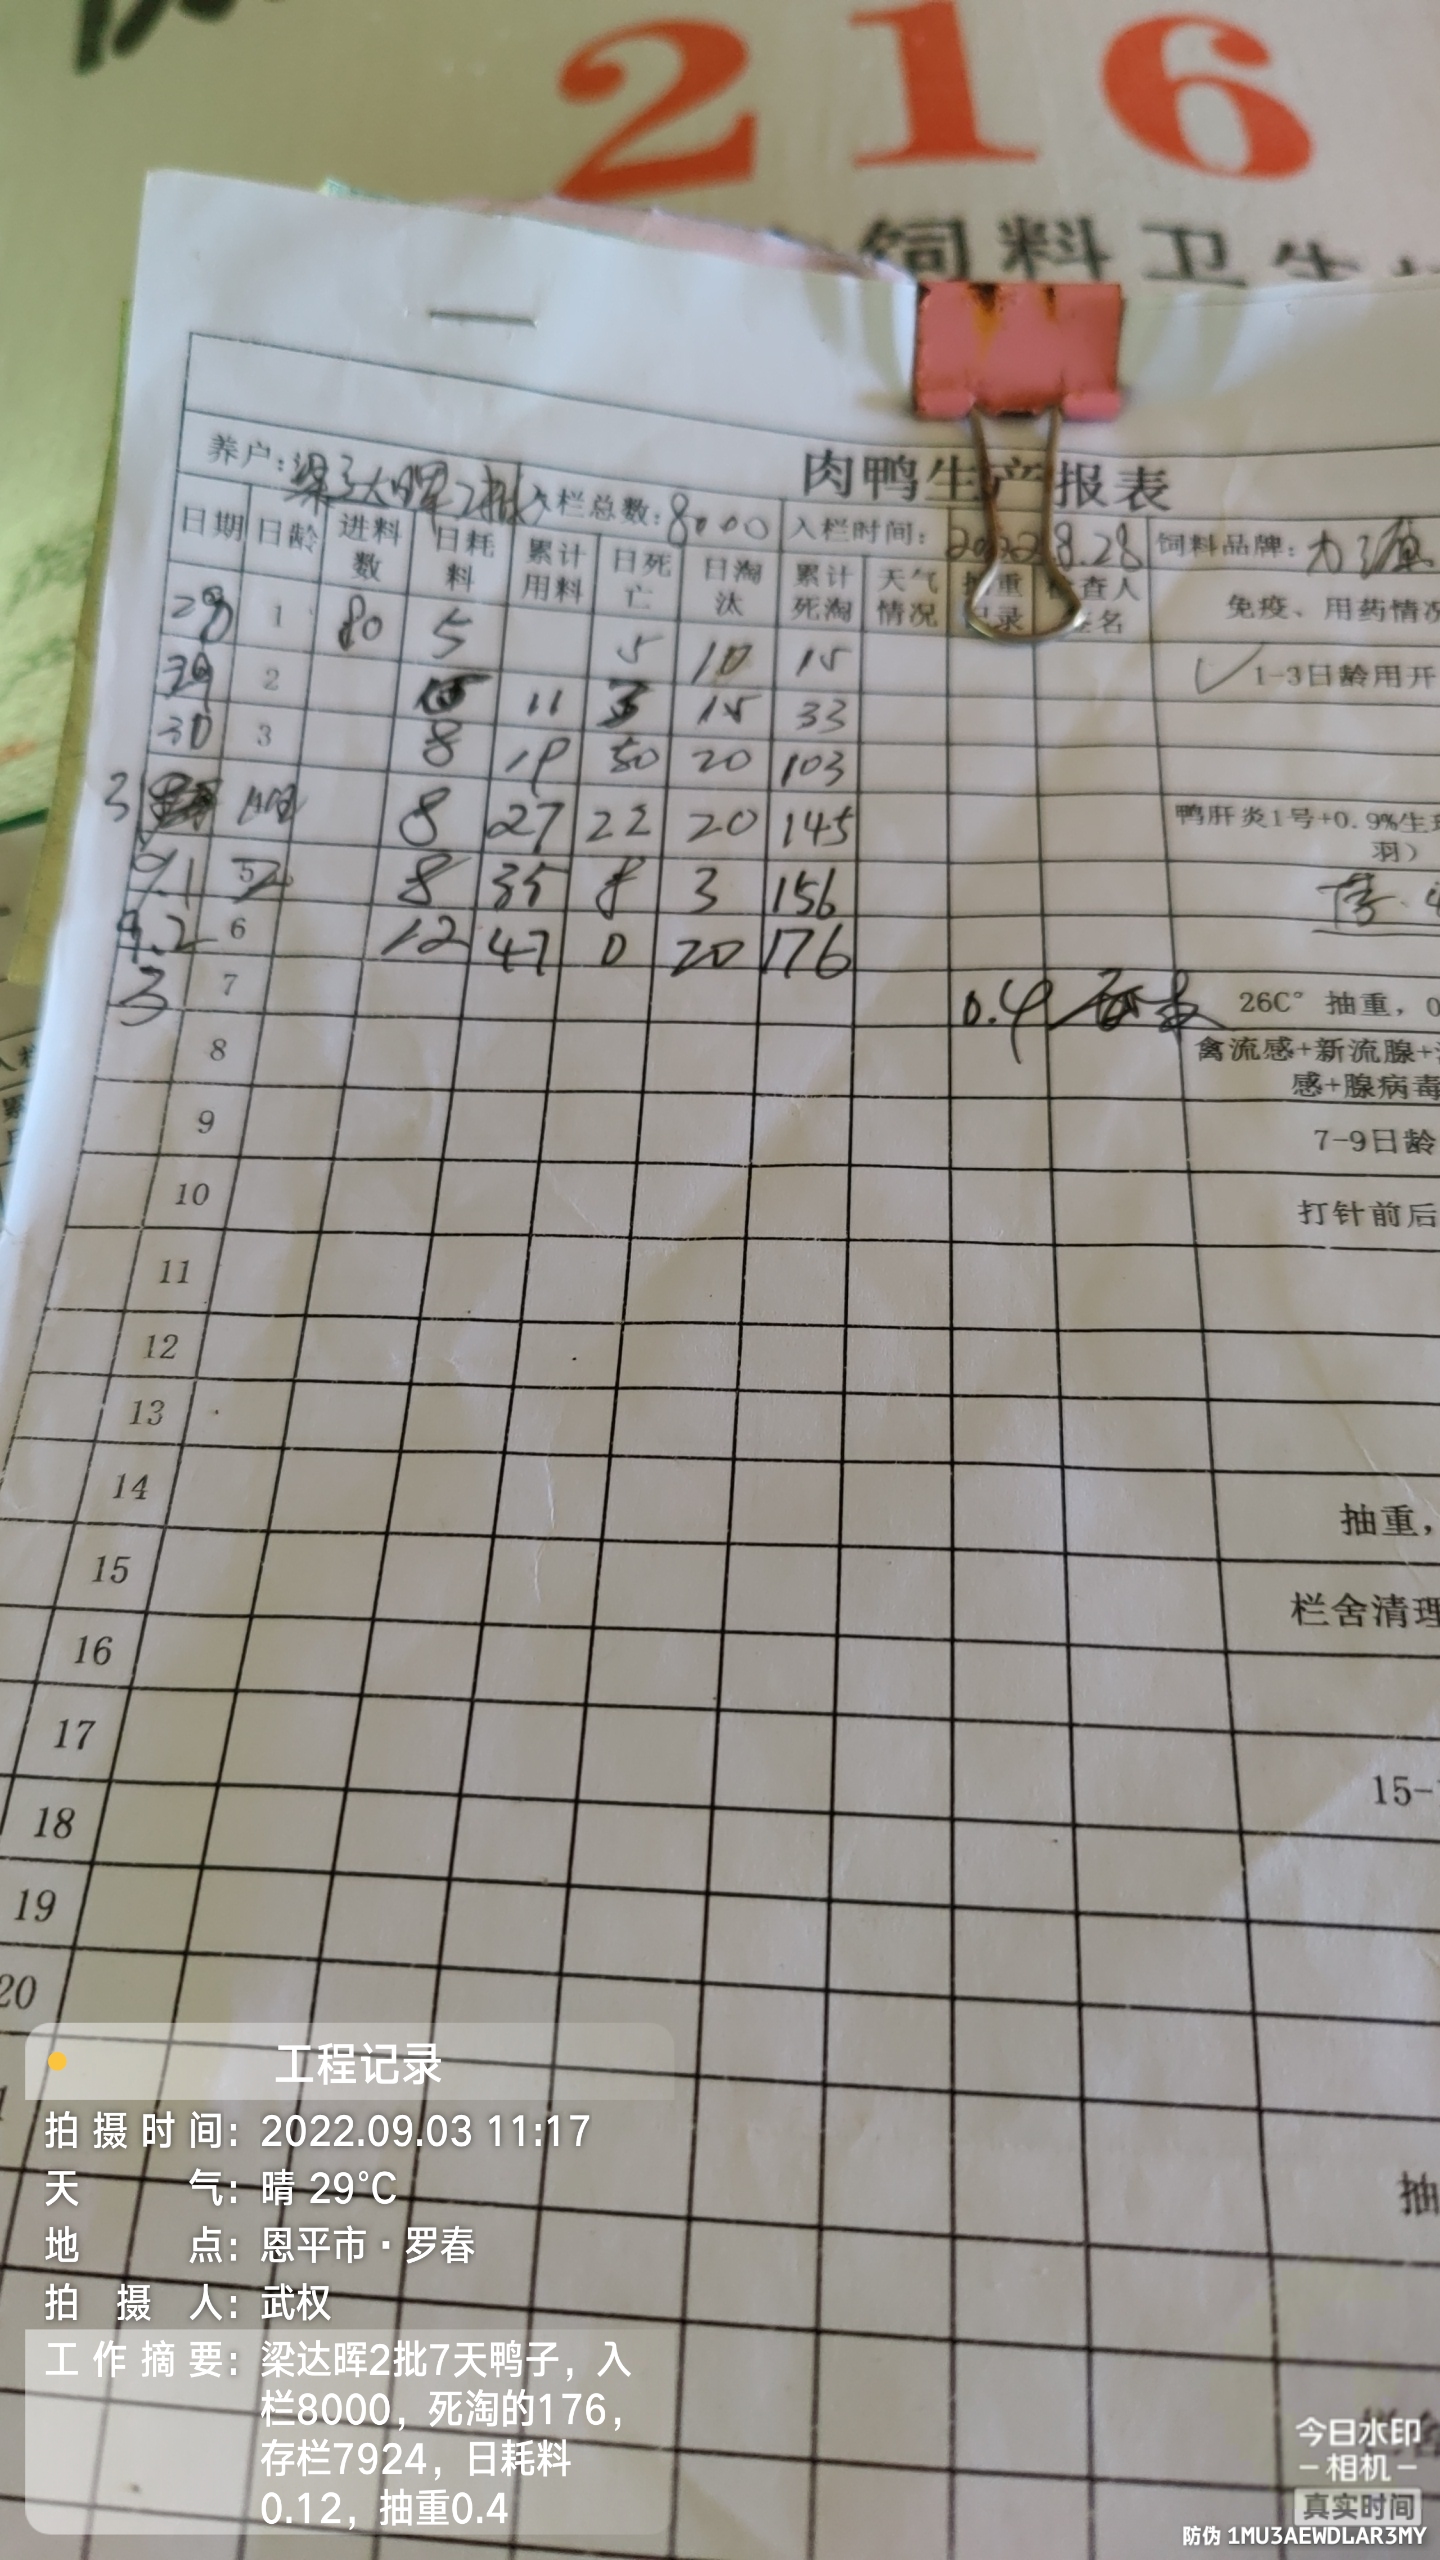 216
饲料卫生
肉鸭生产报表
养户: 梁达晖2批 入栏总数: 8000 入栏时间: 2022 8.28 饲料品牌:
日期 日龄 进料数 日耗料 累计用料 日死亡 日淘汰 累计死淘 天气情况 抽重记录 检查人签名 免疫、用药情况
28 1 80 5 5 10 15 1-3日龄用开
29 2 11 15 33
30 3 8 19 50 20 103
8 27 22 20 145 鸭肝炎1号+0.9%生理
羽)
9.1 5 8 35 8 3 156
9.2 6 12 47 0 20 176
3 7 0.4 26C° 抽重,0
8 禽流感+新流腺+
感+腺病毒
9 7-9日龄
10 打针前后
11
12
13
14 抽重,
15 栏舍清理
16
17
18 15-
19
20
抽
工程记录
拍摄时间: 2022.09.03 11:17
天气: 晴 29°C
地点: 恩平市·罗春
拍摄人: 武权
工作摘要: 梁达晖2批7天鸭子,入
栏8000,死淘的176,
存栏7924,日耗料
0.12,抽重0.4
今日水印
-相机-
真实时间
防伪 1MU3AEWDLAR3MY